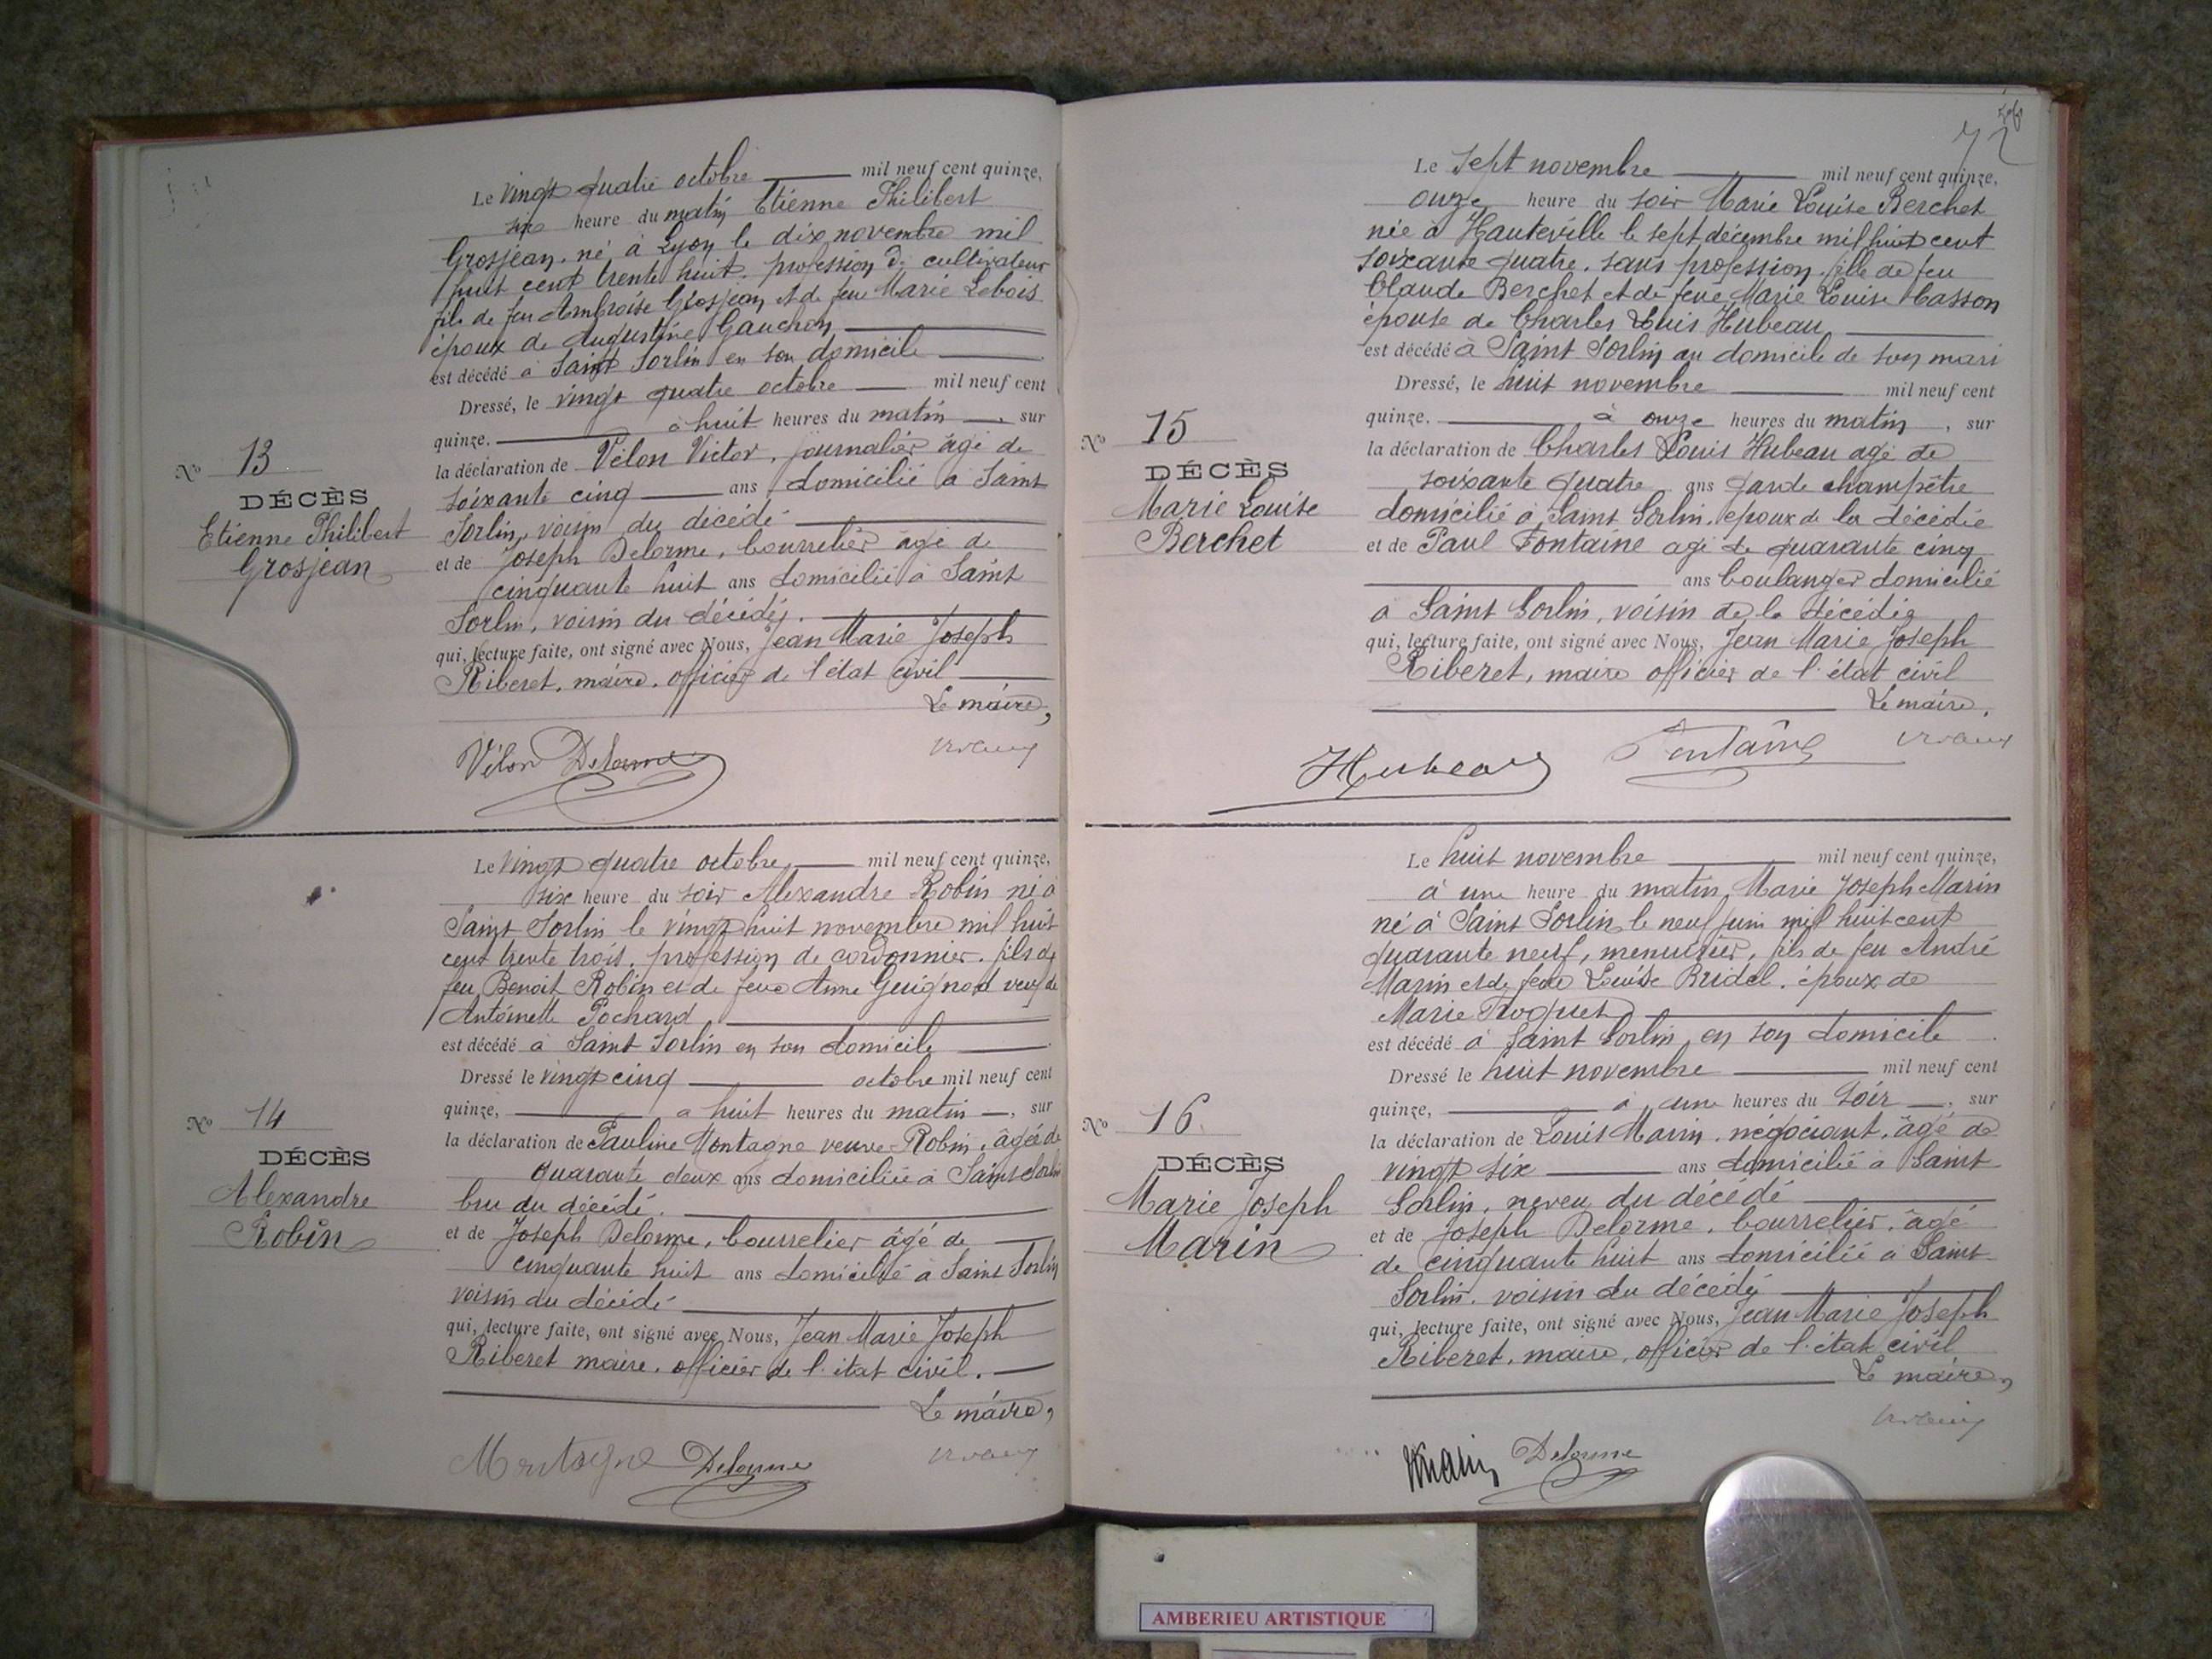 Le vingt quatre octobre mil neuf cent quinze,
six heure du matin Etienne Philibert
Grosjean, né à Lyon le dix novembre mil
huit cent trente huit. profession de cultivateur
fils de feu Ambroise Grosjean et de feue Marie Lebois
époux de Augustine Gauchon
est décédé à Saint Sorlin en son domicile
Dressé, le vingt quatre octobre mil neuf cent
quinze. à huit heures du matin, sur
la déclaration de Vélon Victor, journalier âgé de
soixante cinq ans domicilié à Saint
Sorlin, voisin du décédé
et de Joseph Delorme, bourrelier âgé de
cinquante huit ans domicilié à Saint
Sorlin, voisin du décédé.
qui, lecture faite, ont signé avec Nous, Jean Marie Joseph
Riberet, maire, officier de l'état civil
Le maire,
Vélon Delorme
No 13
DÉCÈS
Etienne Philibert
Grosjean
Le vingt quatre octobre mil neuf cent quinze,
six heure du soir Alexandre Robin né à
Saint Sorlin le vingt huit novembre mil huit
cent trente trois, profession de cordonnier. fils de
feu Benoit Robin et de feue Anne Guignard veuf de
Antoinette Pochard
est décédé à Saint Sorlin en son domicile
Dressé le vingt cinq octobre mil neuf cent
quinze, à huit heures du matin, sur
la déclaration de Pauline Montagne veuve Robin, âgée de
quarante deux ans domiciliée à Saint Sorlin
bru du décédé.
et de Joseph Delorme, bourrelier âgé de
cinquante huit ans domicilié à Saint Sorlin
voisin du décédé
qui, lecture faite, ont signé avec Nous, Jean Marie Joseph
Riberet maire, officier de l'état civil.
Le maire,
Montagne Delorme
No 14
DÉCÈS
Alexandre
Robin
72
Le sept novembre mil neuf cent quinze,
onze heure du soir Marie Louise Berchet
née à Hauteville le sept décembre mil huit cent
soixante quatre, sans profession, fille de feu
Claude Berchet et de feue Marie Louise Casson
épouse de Charles Louis Hubeau
est décédé à Saint Sorlin au domicile de son mari
Dressé, le huit novembre mil neuf cent
quinze. à onze heures du matin, sur
la déclaration de Charles Louis Hubeau agé de
soixante quatre ans garde champêtre
domicilié à Saint Sorlin, époux de la décédée
et de Paul Fontaine agé de quarante cinq
ans boulanger domicilié
à Saint Sorlin, voisin de la décédée
qui, lecture faite, ont signé avec Nous, Jean Marie Joseph
Riberet, maire officier de l'état civil
Le maire,
Hubeau Fontaine
No 15
DÉCÈS
Marie Louise
Berchet
Le huit novembre mil neuf cent quinze,
à une heure du matin, Marie Joseph Marin
né à Saint Sorlin le neuf juin mil huit cent
quarante neuf, menuisier, fils de feu André
Marin et de feue Louise Bridel, époux de
Marie
est décédé à Saint Sorlin, en son domicile
Dressé le huit novembre mil neuf cent
quinze, à une heures du soir, sur
la déclaration de Louis Marin, négociant, âgé de
vingt six ans domicilié à Saint
Sorlin, neveu du décédé
et de Joseph Delorme, bourrelier, âgé
de cinquante huit ans domicilié à Saint
Sorlin. voisin du décédé
qui, lecture faite, ont signé avec Nous, Jean Marie Joseph
Riberet, maire, officier de l'état civil
Le maire,
Marin Delorme
No 16
DÉCÈS
Marie Joseph
Marin
AMBERIEU ARTISTIQUE